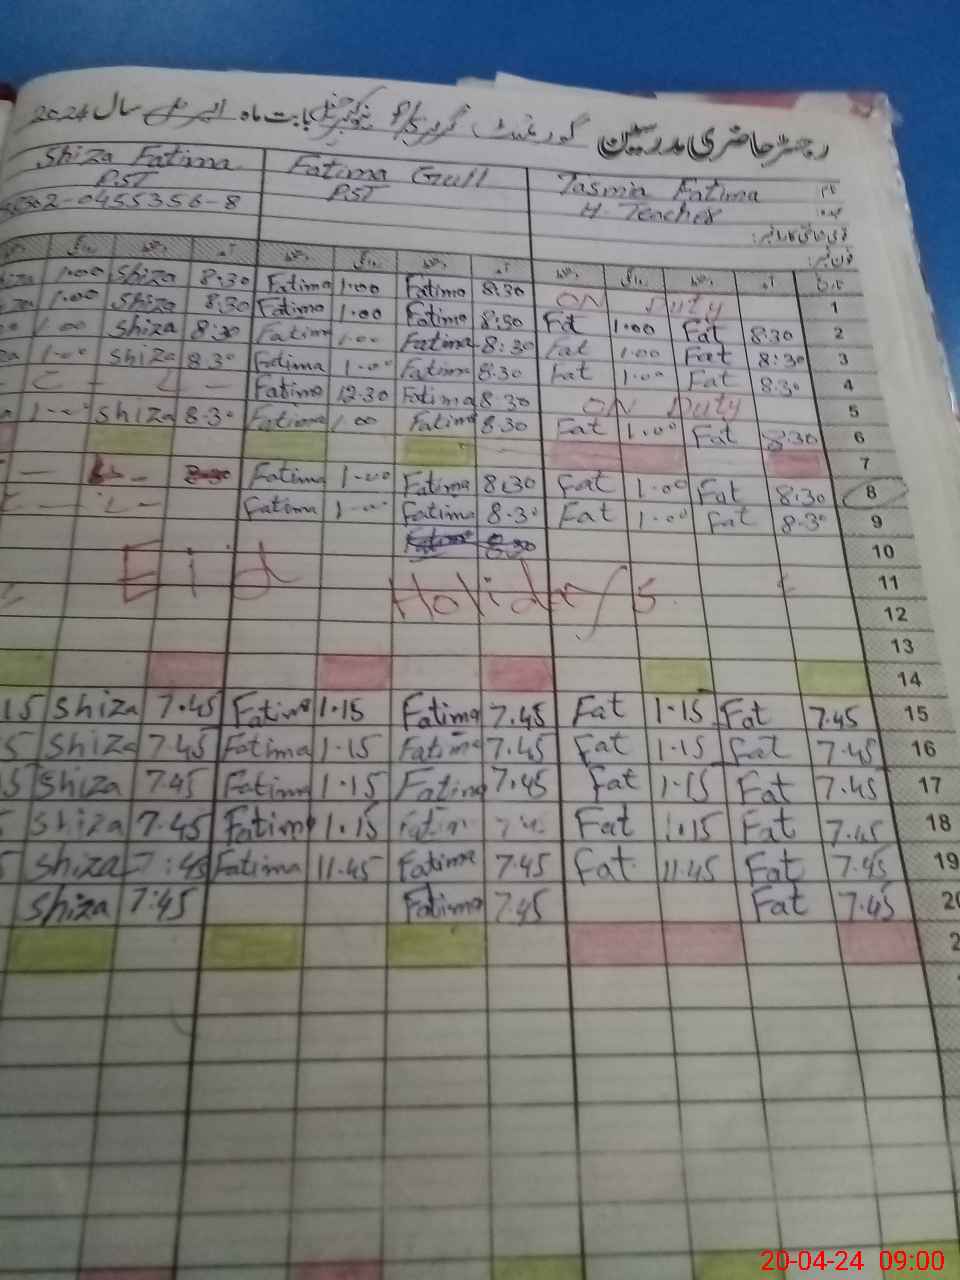 رجسٹر حاضری مدرسین گورنمنٹ گرلز بابت ماہ اپریل سال 2024
Shiza Fatima Fatima Gull Tasmia Fatima نام
PST PST H. Teacher عہدہ
-0455356-8
1.00 Shiza 8:30 Fatima 1.00 Fatima 8:30 ON Duty 1
1.00 Shiza 8:30 Fatima 1.00 Fatima 8:30 Fat 1.00 Fat 8:30 2
1.00 Shiza 8:30 Fatima 1.00 Fatima 8:30 Fat 1.00 Fat 8:30 3
1.00 Shiza 8.30 Fatima 1.00 Fatima 8:30 Fat 1.00 Fat 8.30 4
Fatima 12.30 Fatima 8.30 ON Duty 5
1.00 Shiza 8.30 Fatima 1.00 Fatima 8.30 Fat 1.00 Fat 8:30 6
7
Fatima 1.00 Fatima 8:30 Fat 1.00 Fat 8:30 8
Fatima 1.00 Fatima 8.30 Fat 1.00 Fat 8.30 9
10
Eid Holiday's 11
12
13
14
15 Shiza 7.45 Fatima 1.15 Fatima 7.45 Fat 1.15 Fat 7.45 15
5 Shiza 7.45 Fatima 1.15 Fatima 7.45 Fat 1.15 Fat 7.45 16
5 Shiza 7.45 Fatima 1.15 Fatima 7.45 Fat 1.15 Fat 7.45 17
Shiza 7.45 Fatima 1.15 Fatima 7.45 Fat 1.15 Fat 7.45 18
Shiza 7:45 Fatima 11.45 Fatima 7.45 Fat 11.45 Fat 7.45 19
Shiza 7:45 Fatima 7.45 Fat 7.45 20
2
20-04-24 09:00